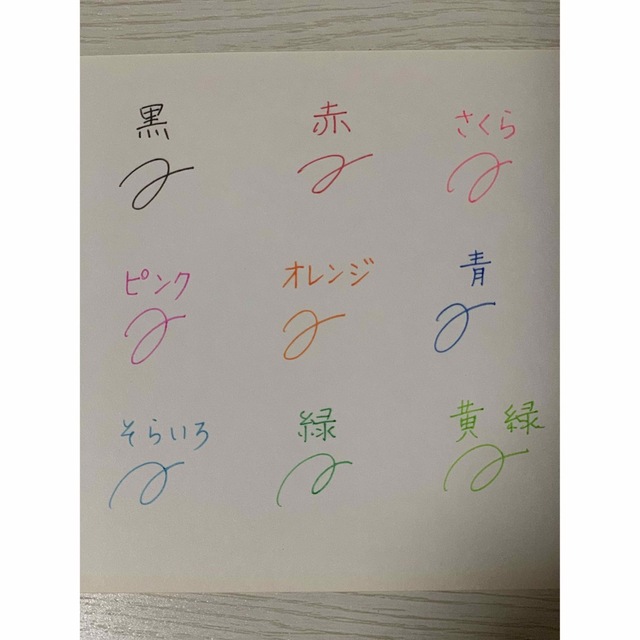 黒 赤 さくら
ピンク オレンジ 青
そらいろ 緑 黄緑